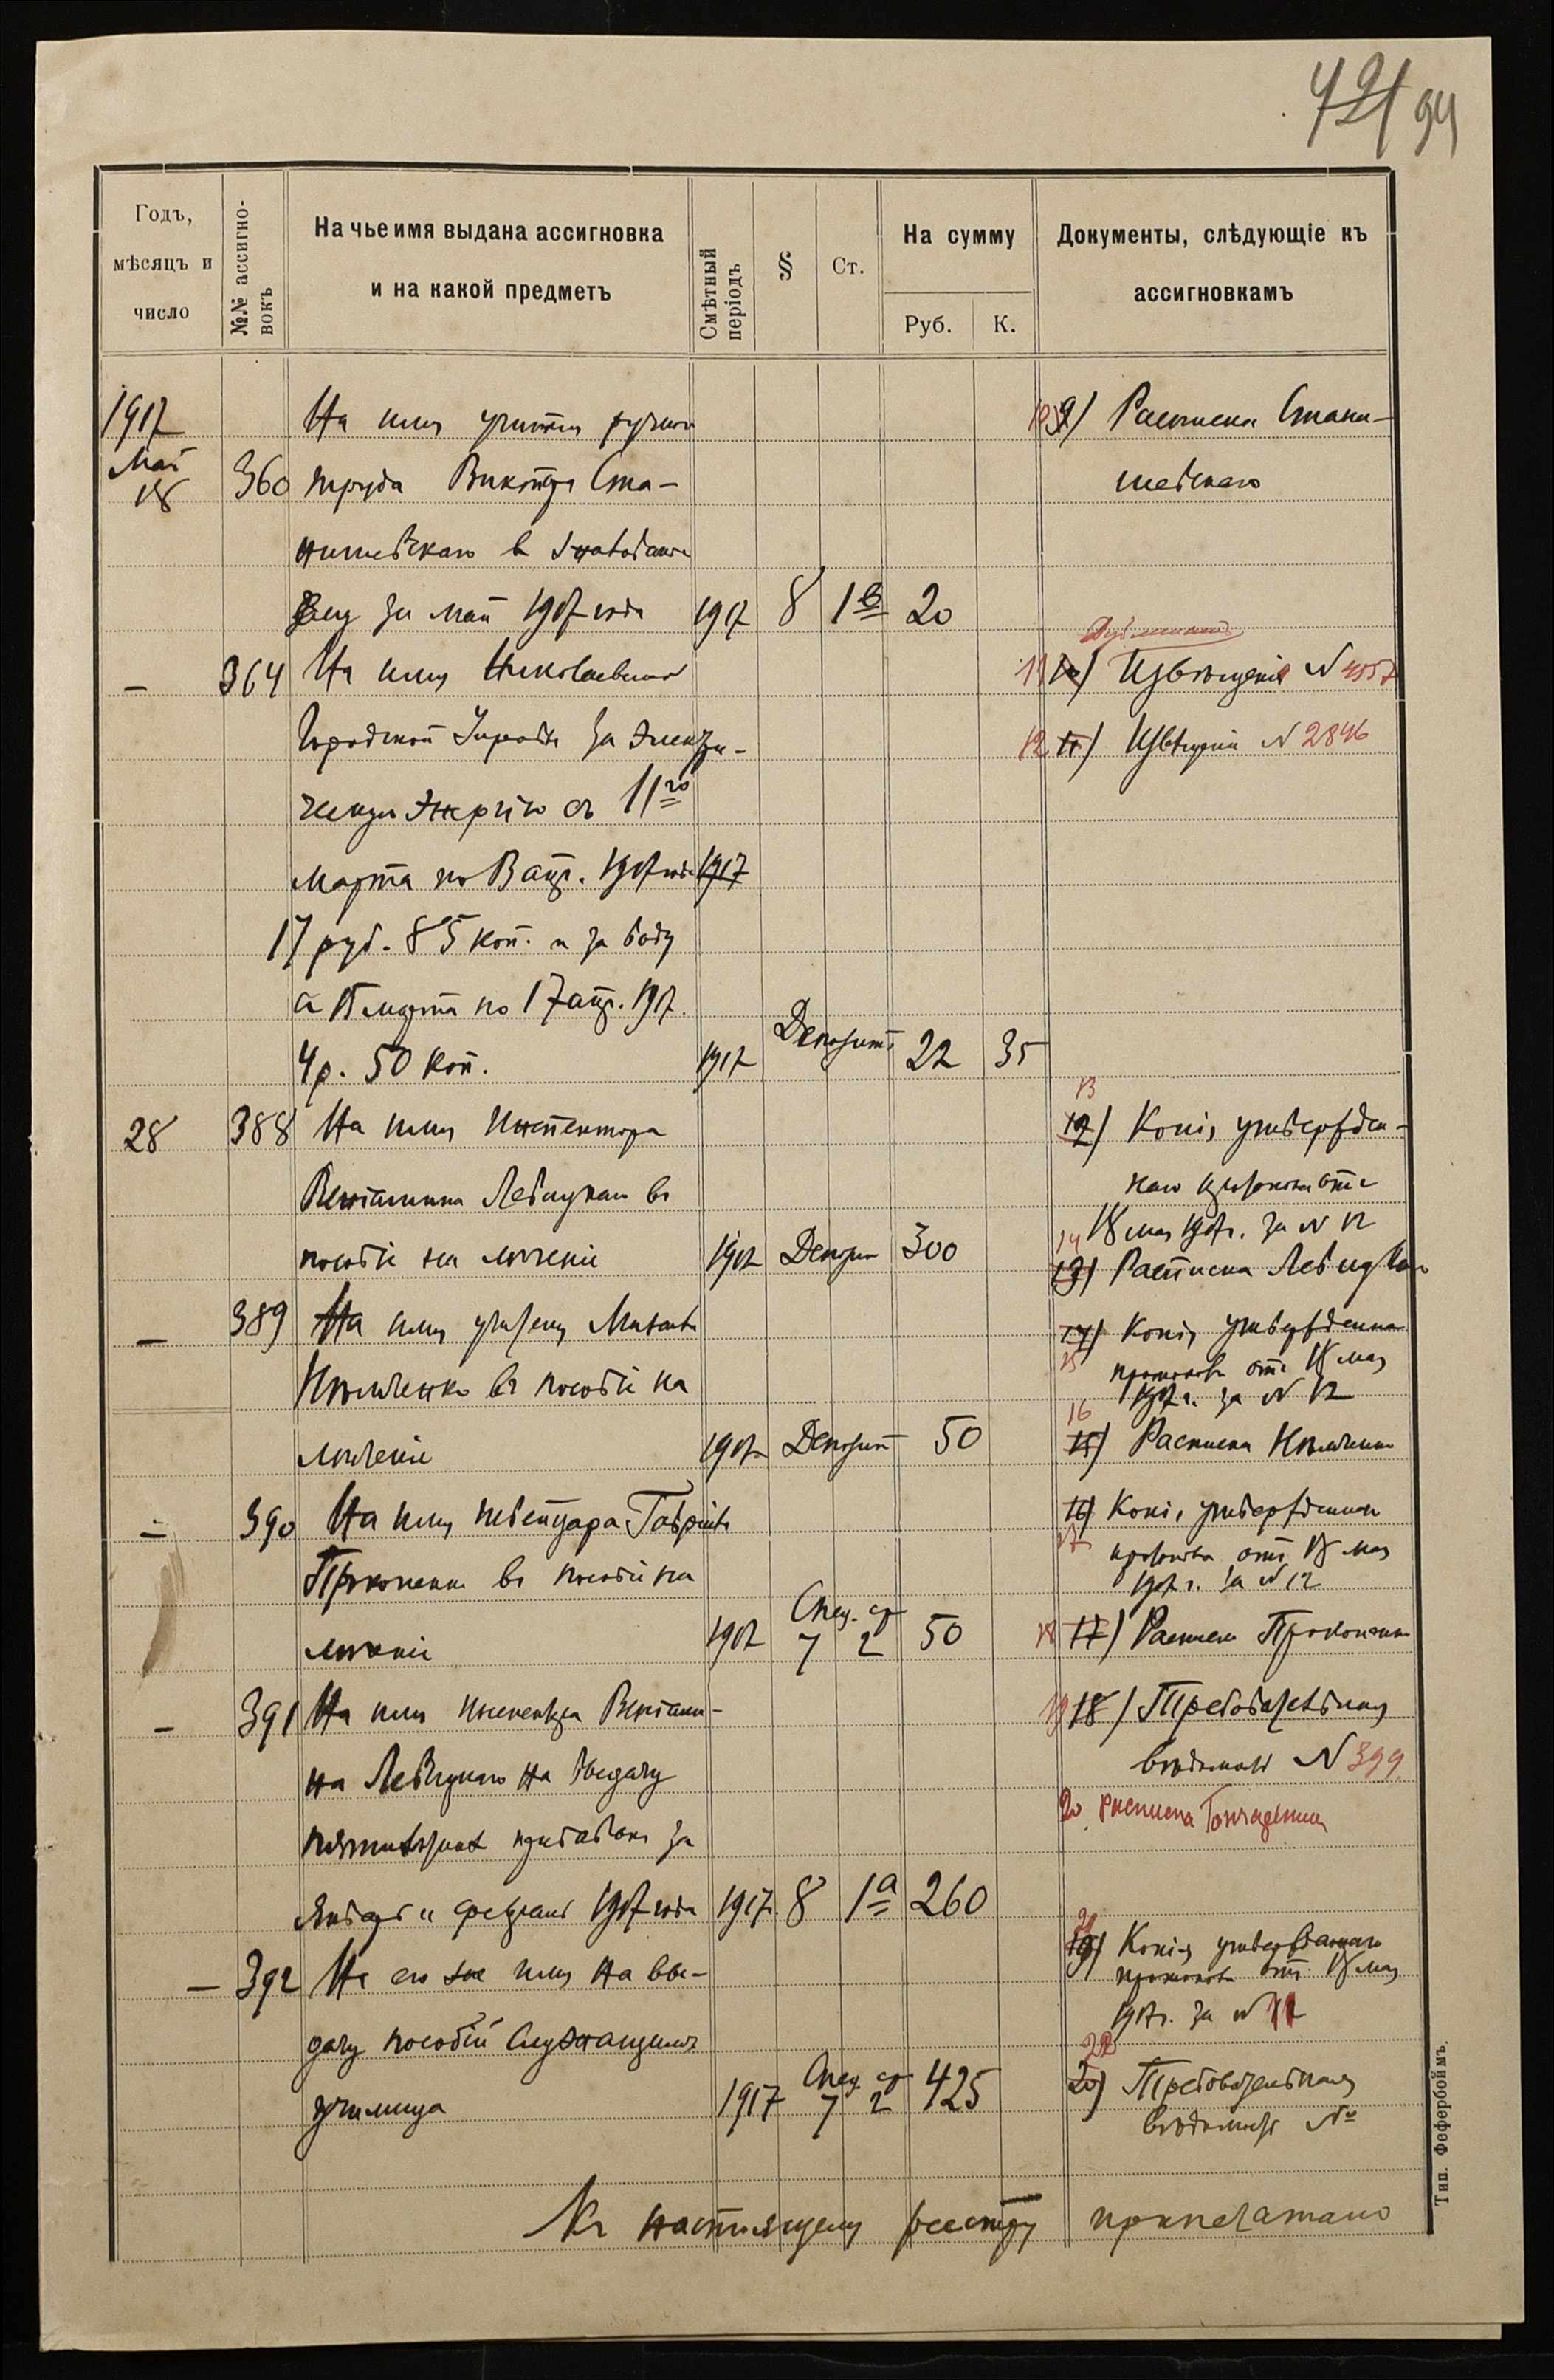 94
Годъ,
мѣсяцъ и
число
№№ ассигно-
вокъ
На чье имя выдана ассигновка
и на какой предметъ
Смѣтный
періодъ
§
Ст.
На сумму
Руб.
К.
Документы, слѣдующіе къ
ассигновкамъ
1917
Май
18
На имя учителя ручного
9) Расписка Стани-
360 труда Виктора Ста-
шевскаго
нишевскаго в
за май 1917 года 1917 8 1в 20
— 364 На имя Николаевской
11 10) Извѣщеніе N
Городской Управы за электри-
12 11) Извѣщеніе N 2846
ческую энергію съ 11го
Марта по апр. 1917 года 1917
17 руб. 85 коп. и за воду
с 15 марта по 17 апр. 1917
4 р. 50 коп. 1917 Депозит 22 35
28 388 На имя Инспектора
13 12) Копія утвержден-
Веніамина Левицкаго въ
наго протокола отъ
18 мая 1917 г. за N 12
пособіе на леченіе 1917 Депозит 300
14 13) Расписка Левицкаго
— 389 На имя
14) Копія утвержденнаго
15 протокола отъ 18 мая
въ пособіе на
1917 г. за N 12
16
леченіе 1917 Депозит 50
15) Расписка
— 390 На имя швейцара Гавріила
16) Копія утвержденнаго
17 протокола отъ 18 мая
Прокопенко въ пособіе на
1917 г. за N 12
леченіе 1917 Спец. ср. 7 2 50
18 17) Расписка Прокопенко
— 391 На имя инспектора Веніами-
19 18) Требовательная
на Левицкаго на выдачу
вѣдомость N 399
20 Расписка
прибавки за
Январь и февраль 1917 года 1917 8 1а 260
21 19) Копія утвержденнаго
— 392 На его же имя на вы-
протокола отъ 18 мая
1917 г. за N 12
дачу пособій служащимъ
22
училища 1917 Спец. ср. 7 2 425
20) Требовательная
вѣдомость №
Къ настоящему реестру припечатано
Тип. Фефербоймъ.